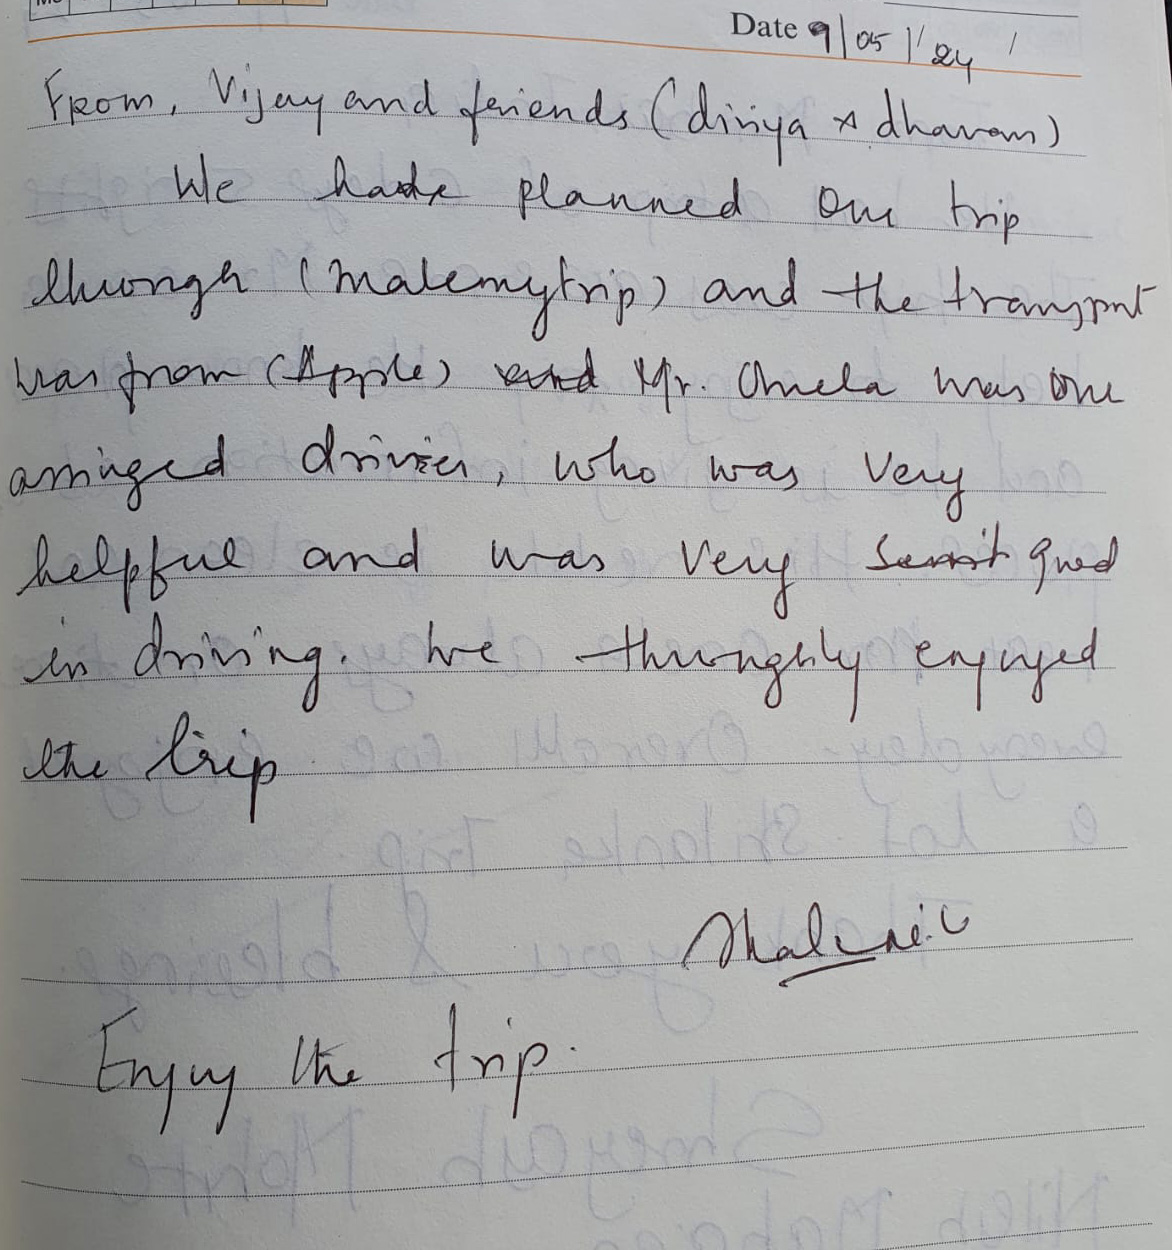 Date 9/05/'24 /
From, Vijay and friends (diviya & dharam)
We have planned our trip
through (Makemytrip) and the transprt
was from (Apple) and Mr. was our
arringed drivier, who was very
helpful and was very good
in driving. We throughly enjoyed
the trip
Enjoy the trip.